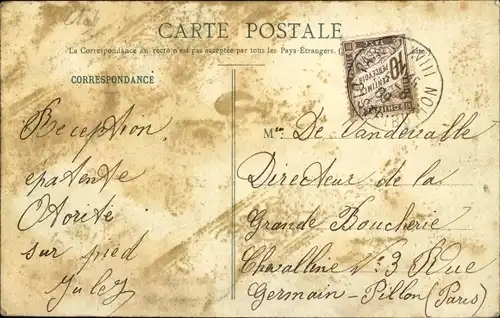 CARTE POSTALE
La Correspondance au recto n'est pas acceptée par tous les Pays-Étrangers.
CORRESPONDANCE
Reception
épatente
Otorité
sur pied
Jules
10
CENTIMES
À PERCEVOIR
Mr De Vandevalle
Directeur de la
Grande Boucherie
Chevalline No 3 Rue
Germain-Pillon (Paris)